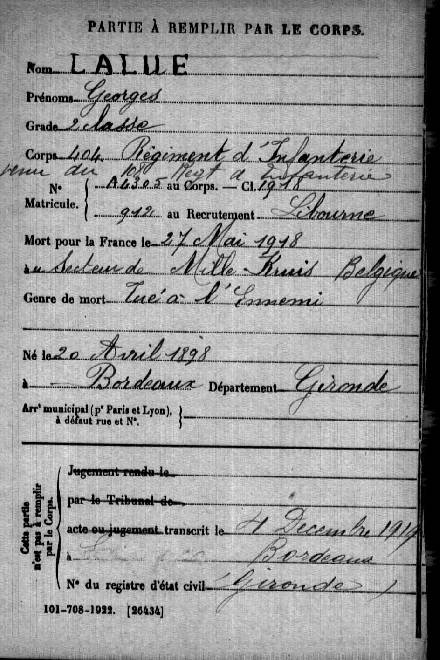 PARTIE À REMPLIR PAR LE CORPS.
Nom LALUE
Prénoms Georges
Grade 2 classe
Corps 404 Régiment d'Infanterie
venu du 108 Regt d Infanterie
N° Matricule. A4305 au Corps. — Cl. 1918
912 au Recrutement Libourne
Mort pour la France le 27 Mai 1918
à u Secteur de Mille Kruis Belgique
Genre de mort Tué à l'Ennemi
Né le 20 Avril 1898
à Bordeaux Département Gironde
Arrt municipal (pr Paris et Lyon),
à défaut rue et N°.
Cette partie n'est pas à remplir par le Corps.
Jugement rendu le
par le Tribunal de
acte ou jugement transcrit le 4 Decembre 1919
à Bordeaux
N° du registre d'état civil Gironde
101-708-1922. [26434]